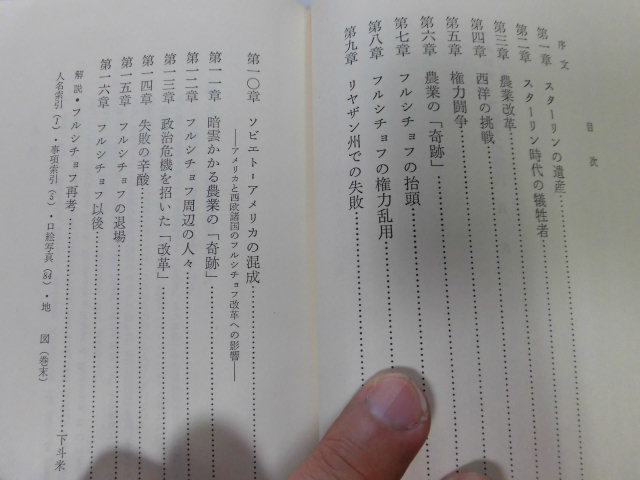 目次
序文
第一章 スターリンの遺産
第二章 スターリン時代の犠牲者
第三章 農業改革
第四章 西洋の挑戦
第五章 権力闘争
第六章 農業の「奇跡」
第七章 フルシチョフの抬頭
第八章 フルシチョフの権力乱用
第九章 リヤザン州での失敗
第一〇章 ソビエト-アメリカの混成
――アメリカと西欧諸国のフルシチョフ改革への影響――
第一一章 暗雲かかる農業の「奇跡」
第一二章 フルシチョフ周辺の人々
第一三章 政治危機を招いた「改革」
第一四章 失敗の辛酸
第一五章 フルシチョフの退場
第一六章 フルシチョフ以後
解説・フルシチョフ再考 下斗米
人名索引(1)・事項索引(8)・口絵写真(84)・地図(巻末)